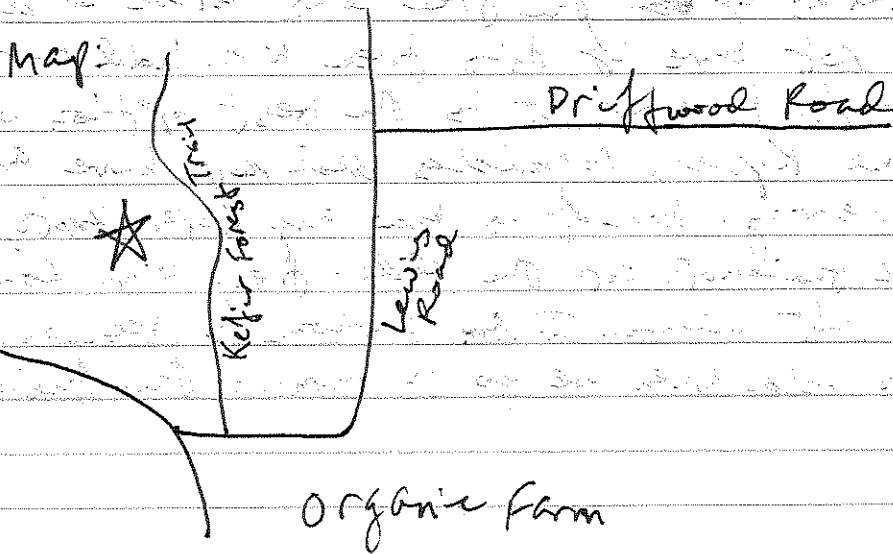 Map:
Driftwood Road
Trail
Kefir Forest
Lewis
Road
Organic Farm